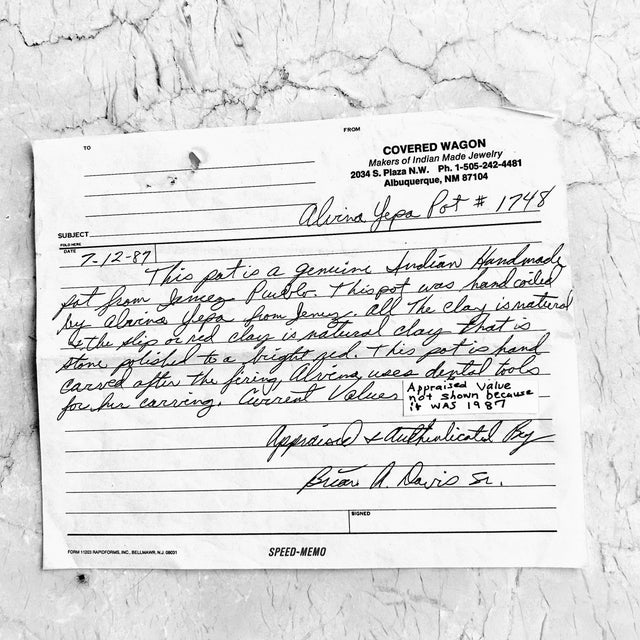 FROM
TO
COVERED WAGON
Makers of Indian Made Jewelry
2034 S. Plaza N.W. Ph. 1-505-242-4481
Albuquerque, NM 87104
Alvina Yepa Pot # 1748
SUBJECT
FOLD HERE
DATE
7-12-87
This pot is a genuine Indian Handmade
pot from Jemez Pueblo. This pot was hand coiled
by Alvina Yepa from Jemez. All The clay is natural
& the slip or red clay is natural clay that is
stone polished to a bright red. This pot is hand
carved after the firing, Alvina uses dental tools
for her carving. Current Values
Appraised Value
not shown because
it WAS 1987
Appraised & Authenticated By
Brian A. Davis Sr.
SIGNED
FORM 11203 RAPIDFORMS, INC., BELLMAWR, N.J. 08031
SPEED-MEMO